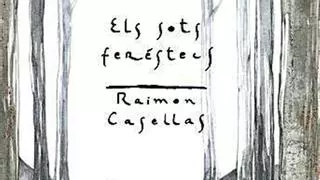 Els sots
feréstecs
Raimon
Casellas